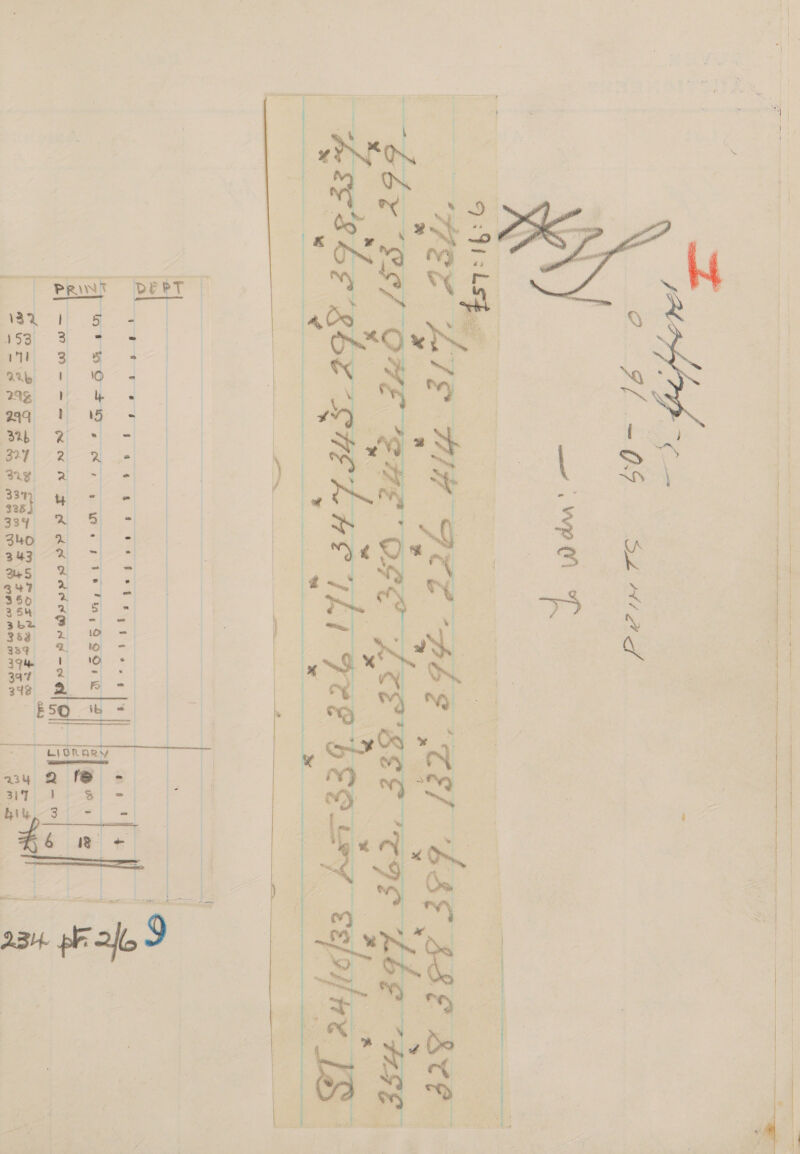 PRINT DEPT
132 1 5 -
153 3 - -
171 3 5 -
226 1 10 -
298 1 4 -
299 1 15 -
326 2 - -
327 2 2 -
328 2 - -
337
338 } 4 - -
339 2 5 -
340 2 - -
343 2 - -
345 2 - -
347 2 - -
350 2 - -
354 2 5 -
362 3 - -
388 2 10 -
389 2 10 -
394 1 10 -
397 2 - -
398 2 - -
£50 16 -
LIBRARY
234 2 10 -
317 1 8 -
414 3 - -
£6 18 -
234 pt. 2/6 9
ST 24/10/33 Lot 339. 326 171. 347. 345. 298. 398. 337.
354. 397. 362. 338. 327. 350. 343. 340. 153. 299.
328 388 389. 132. 394. 226 414 317. 234.
£57:16:6
To Wdn: —
PRINTS 50 - 16 0
H